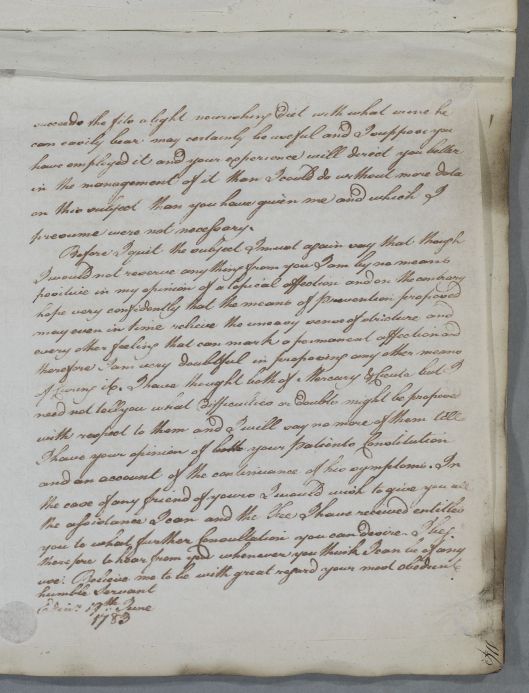 succeeds the fits a light nourishing Diet with what wine he
can easily bear may certainly be useful and I suppose you
have employed it and your experience will direct you better
in the management of it than I could do without more data
on this subject than you have given me and which I
presume were not necessary.
Before I quit the subject I must again say that though
I would not reserve any thing from you I am by no means
positive in my opinion of a topical affection and on the contrary
hope very confidently that the means of prevention proposed
may even in time relieve the uneasy sense of stricture and
every other feeling that can mark a permanent affection and
therefore I am very doubtful in proposing any other means
of curing it. I have thought both of Mercury & Cicuta but I
need not tell you what difficulties or doubts might be propose
with respect to them and I will say no more of them till
I have your opinion of both your Patients Constitution
and an account of the continuance of his symptoms. In
the case of any friend of yours I would wish to give you all
the assistance I can and the Fee I have received entitles
you to what further Consultation you can desire. I hope
therefore to hear from you whenever you think I can be of any
use. Believe me to be with great regard your most obedient
humble Servant
Edinr. 19th June
1783